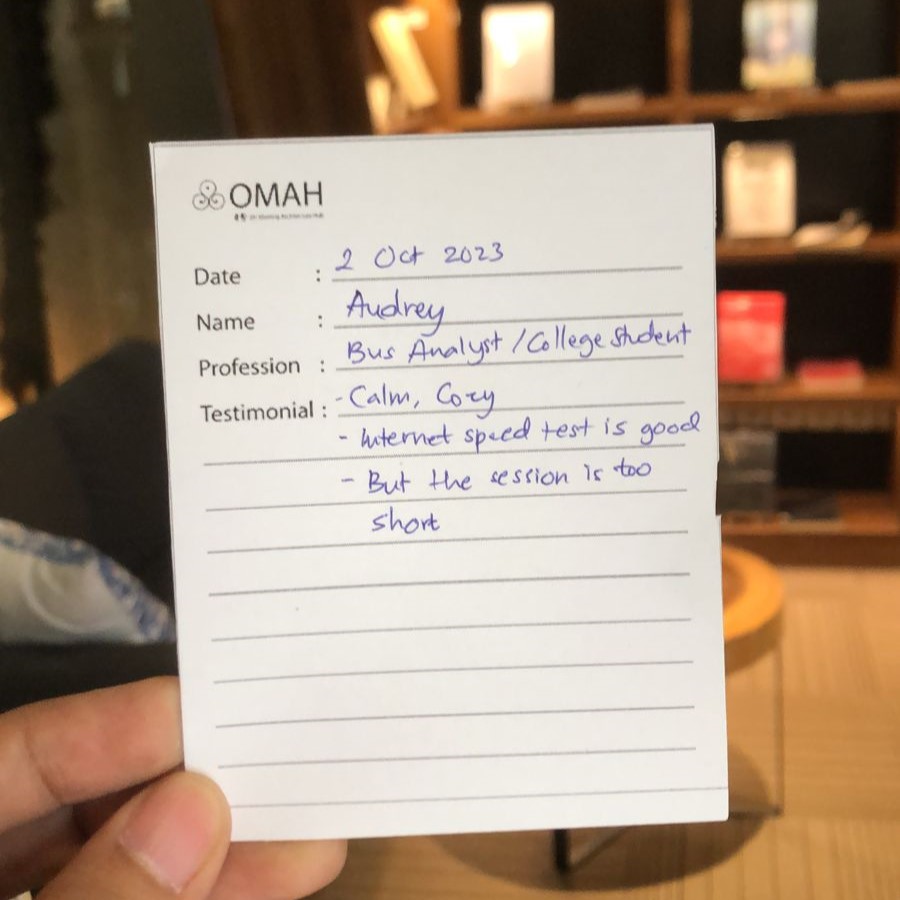 OMAH
Date : 2 Oct 2023
Name : Audrey
Profession : Bus Analyst / College Student
Testimonial : - Calm, Cozy
- Internet speed test is good
- But the session is too
short